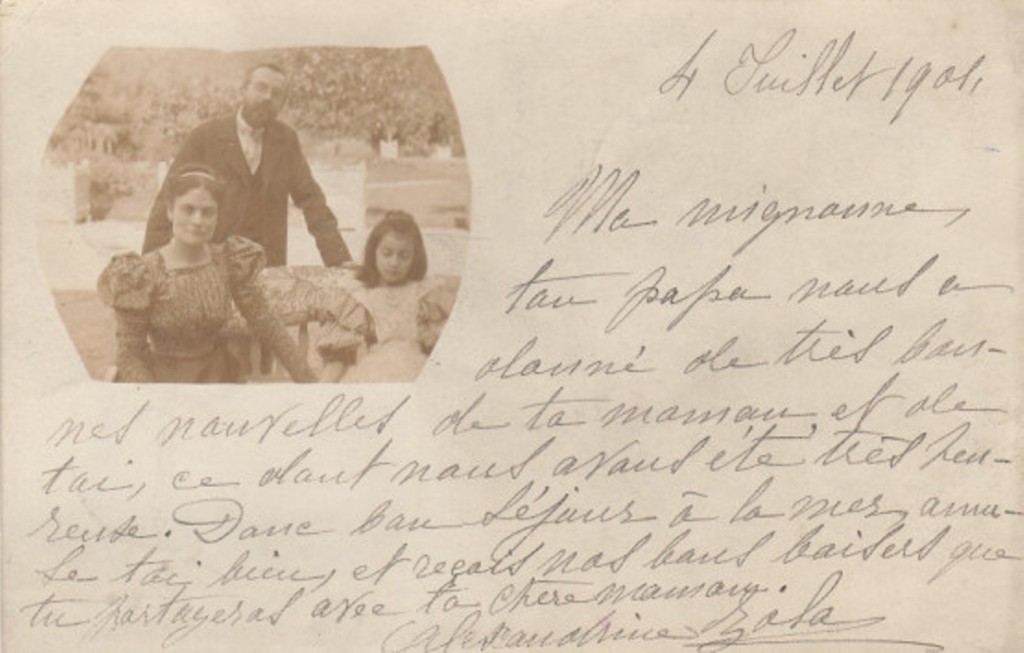 4 Juillet 1904
Ma mignonne,
ton papa nous a
donné de très bon-
nes nouvelles de ta maman, et de
toi, ce dont nous avons été très heu-
reuse. Donc bon séjour à la mer, amu-
se toi, bien, et reçois nos bons baisers que
tu partageras avec ta chère maman.
Alexandrine Zola